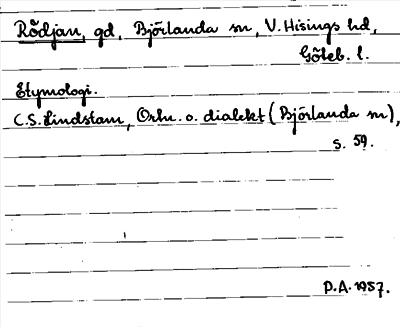 Rödjan, gd, Björlanda sn, V. Hisings hd,
Göteb. l.
Etymologi.
C.S. Lindstam, Ortn. o. dialekt (Björlanda sn),
s. 59.
D.A. 1957.